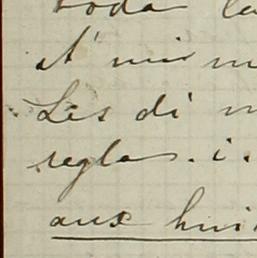 toda la
A' mi m
Les di m
reglas. i.
aux hui